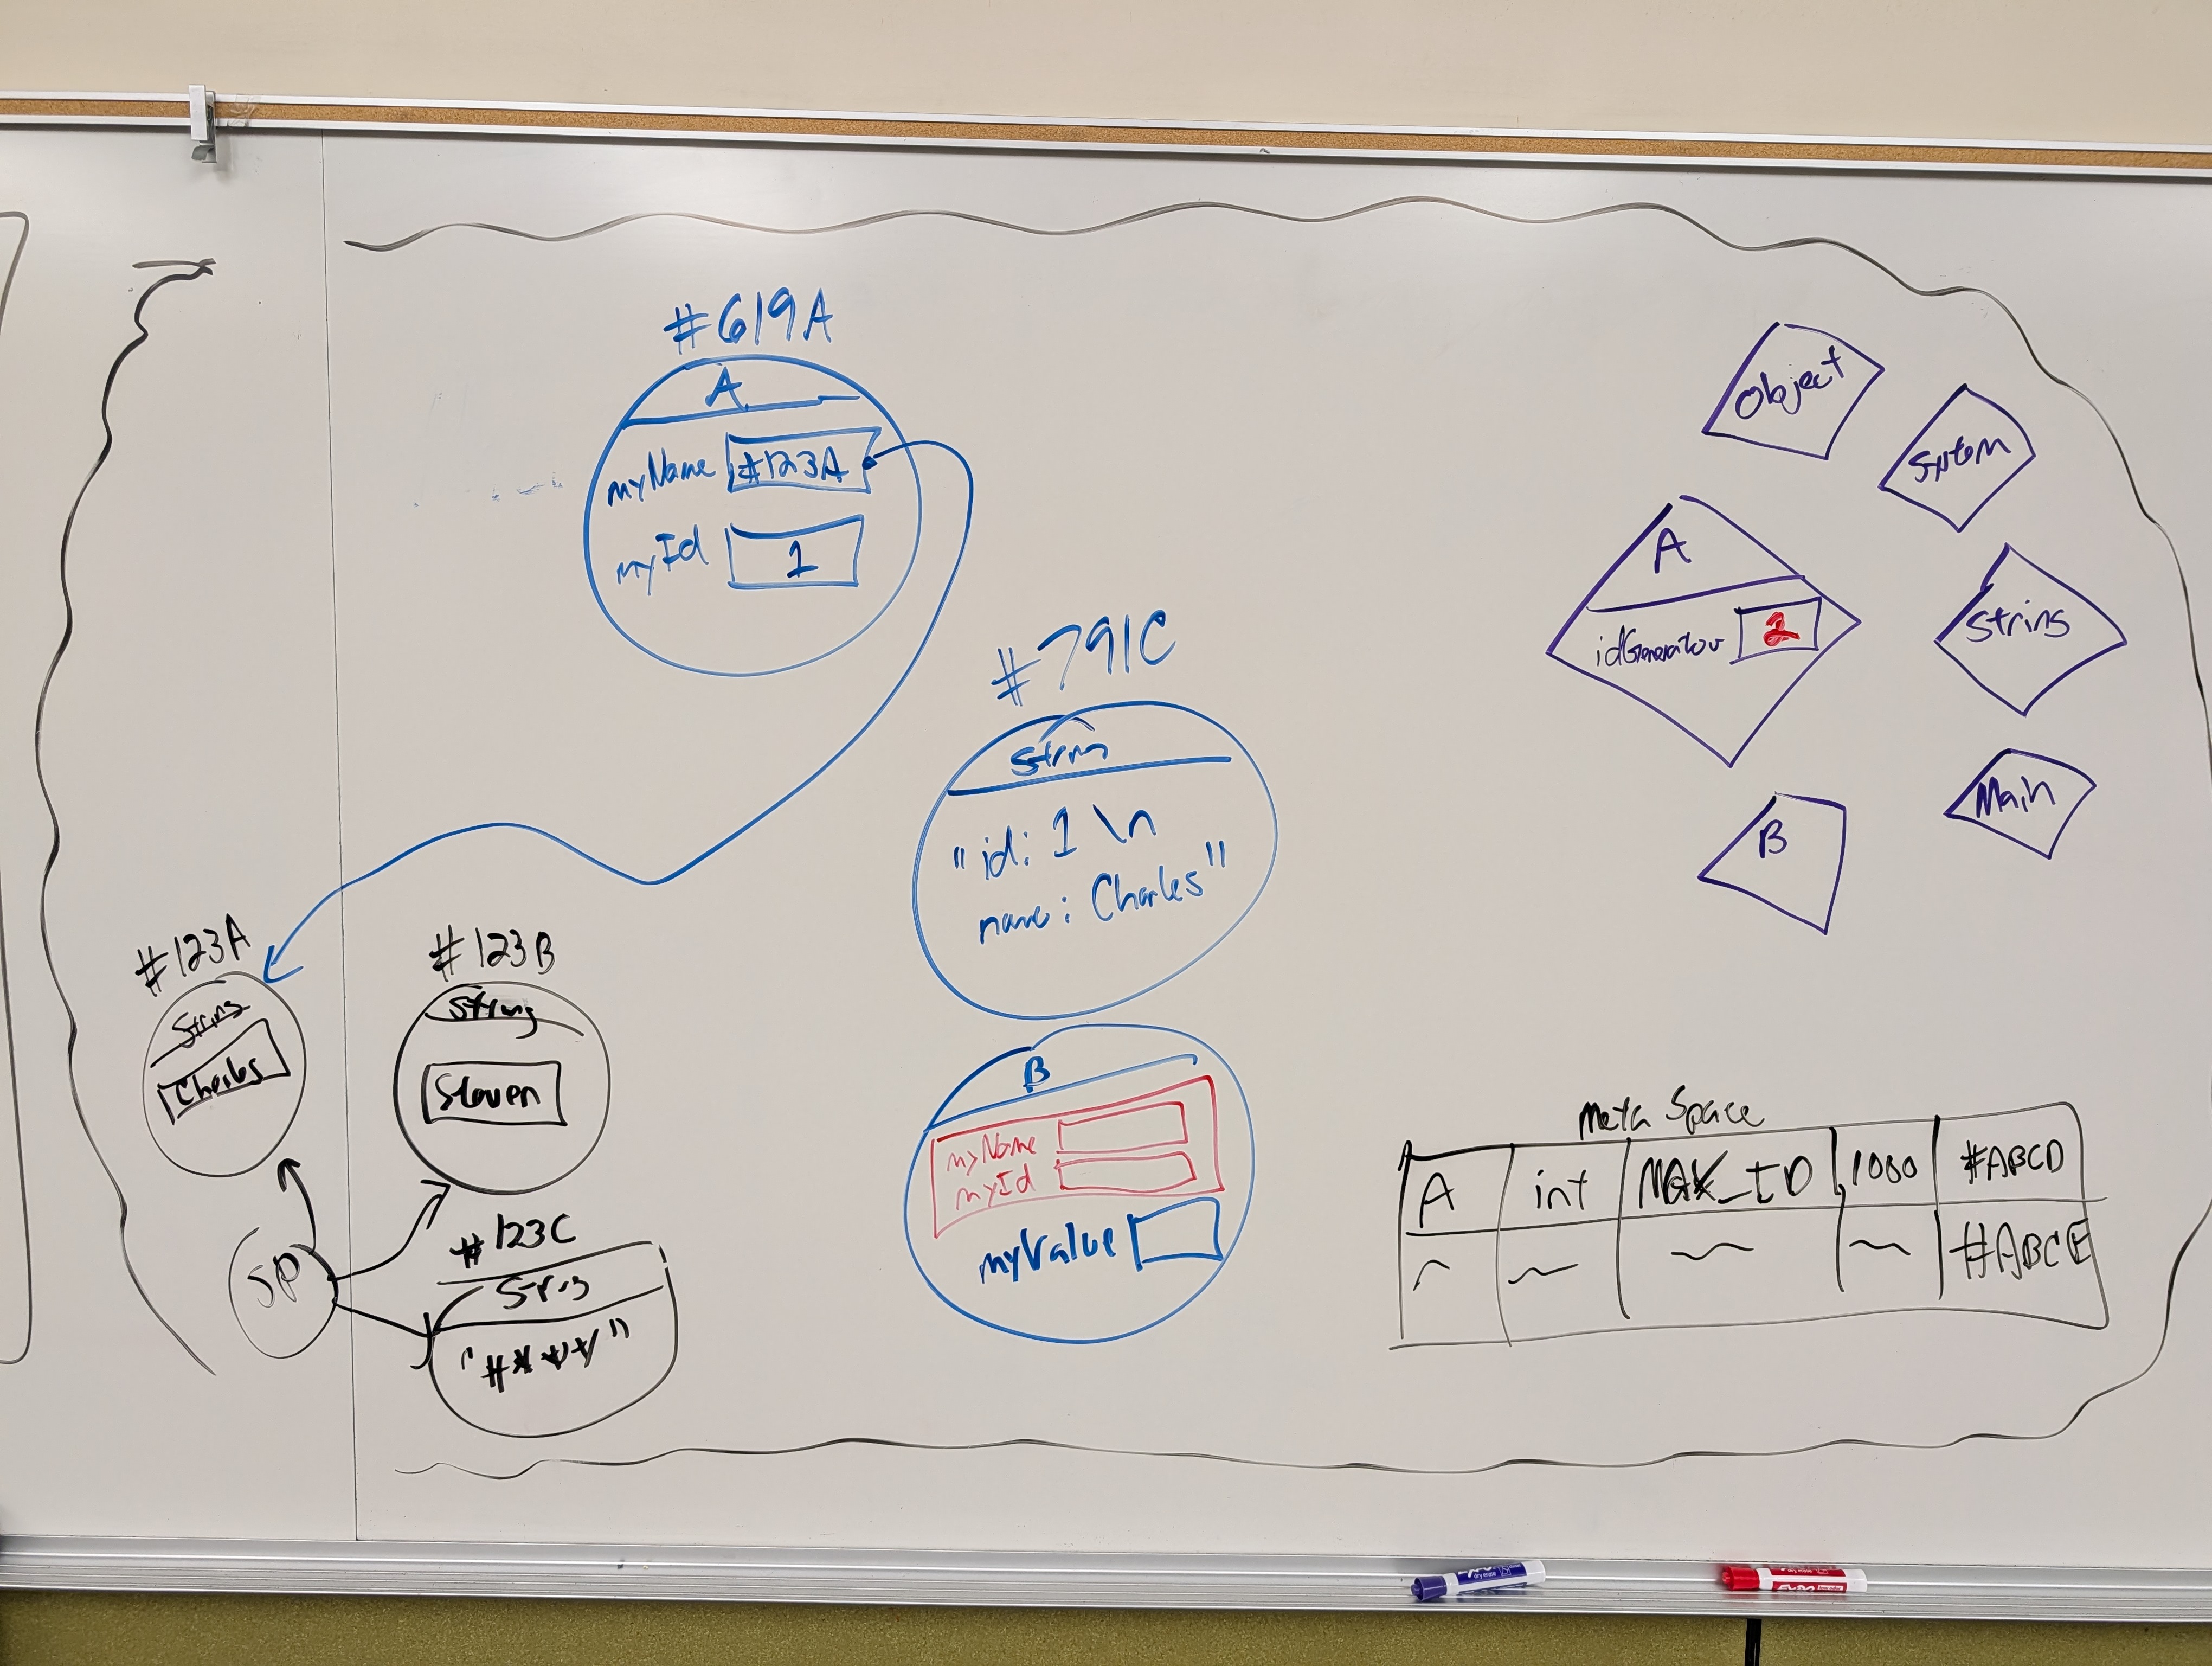 #619A
A
myName #123A
myId 1
#791C
String
"id: 1 \n
name: Charles"
#123A
String
Charles
#123B
String
Steven
SP
#123C
String
B
myName
myId
myValue
Object
System
A
idGenerator 2
String
B
Main
Meta Space
A int MAX_ID 1000 #ABCD
#ABCE
EXPO
dry erase
EXPO